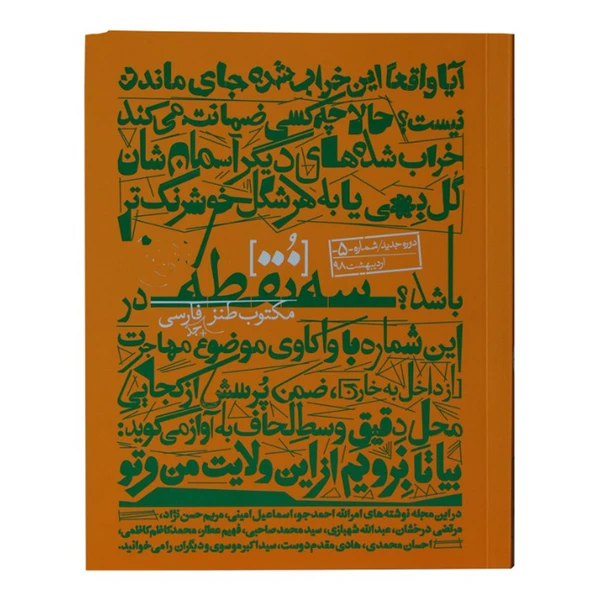 آیا واقعا این خراب شده جای ماندن
نیست؟ حالا چه کسی ضمانت می‌کند
خراب شده‌های دیگر آسمان‌شان
گل بهی یا به هر شکل خوشرنگ‌تر
دوره جدید/شماره -۵-
اردیبهشت ۹۸
[...]
باشد؟ سه نقطه در
مکتوب طنز فارسی
این شماره با واکاوی موضوع مهاجرت
[از داخل به خارج]، ضمن پرسش از کجایی
محل دقیق وسط لحاف به آواز می‌گوید:
بیا تا برویم از این ولایت من و تو
در این مجله نوشته‌های امرالله احمدجو، اسماعیل امینی، مریم حسن‌نژاد،
مرتضی درخشان، عبدالله شهبازی، سید محمد صاحبی، فهیم عطار، محمدکاظم کاظمی،
احسان محمدی، هادی مقدم‌دوست، سید اکبر موسوی و دیگران را می‌خوانید.